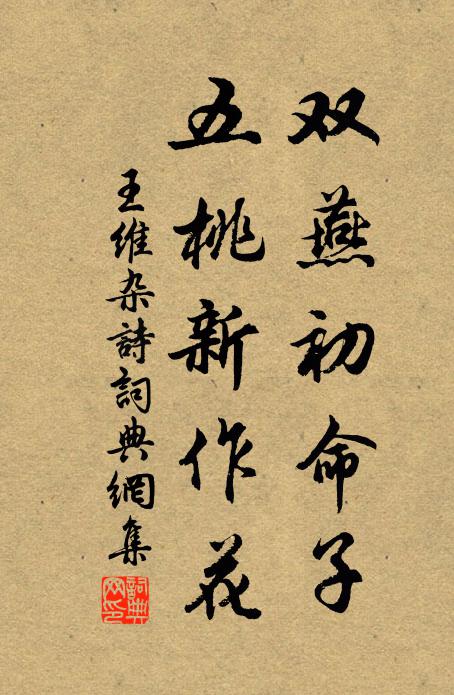 双燕初命子
五桃新作花
王维杂詩詞典網集
詞典网印